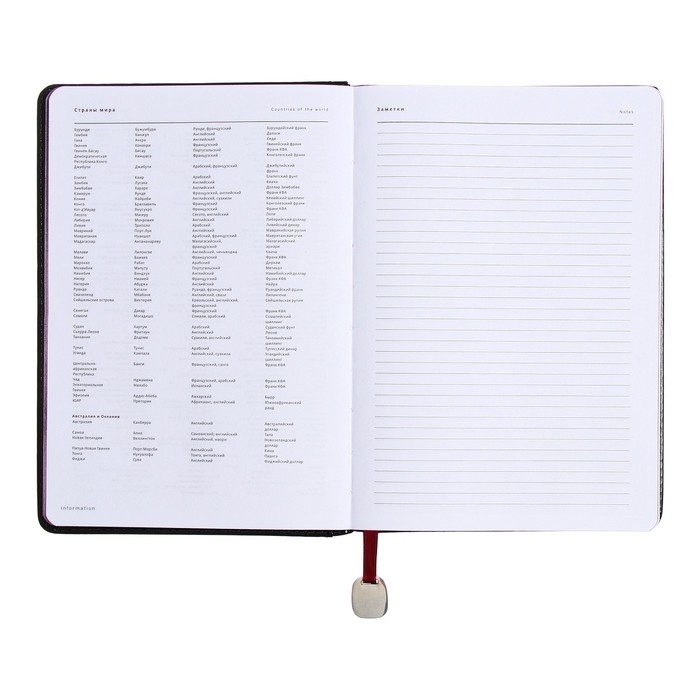 Страны мира Countries of the world
Бурунди Бужумбура Рунди, французский Бурундийский франк
Гамбия Банжул Английский Даласи
Гана Аккра Английский Седи
Гвинея Конакри Французский Гвинейский франк
Гвинея-Бисау Бисау Португальский Франк КФА
Демократическая Киншаса Французский Конголезский франк
Республика Конго
Джибути Джибути Арабский, французский Джибутийский
франк
Египет Каир Арабский Египетский фунт
Замбия Лусака Английский Квача
Зимбабве Хараре Английский Доллар Зимбабве
Камерун Яунде Французский, английский Франк КФА
Кения Найроби Английский, суахили Кенийский шиллинг
Конго Браззавиль Французский Франк КФА
Кот-д'Ивуар Ямусукро Французский
Лесото Масеру Сесото, английский Лоти
Либерия Монровия Английский Либерийский доллар
Ливия Триполи Арабский Ливийский динар
Маврикий Порт-Луи Английский Маврикийская рупия
Мавритания Нуакшот Арабский Мавританская угия
Мадагаскар Антананариву Малагасийский, Малагасийский
французский ариари
Малави Лилонгве Английский, чичевва Квача
Мали Бамако Французский Франк КФА
Марокко Рабат Арабский Дирхам
Мозамбик Мапуту Португальский Метикал
Намибия Виндхук Английский Намибийский доллар
Нигер Ниамей Французский Франк КФА
Нигерия Абуджа Английский Найра
Руанда Кигали Руанда, французский Руандийский франк
Свазиленд Мбабане Английский, свази Лилангени
Сейшельские острова Виктория Креольский, английский, Сейшельская рупия
французский
Сенегал Дакар Французский Франк КФА
Сомали Могадишо Сомали, арабский Сомалийский
шиллинг
Судан Хартум Арабский Суданский фунт
Сьерра-Леоне Фритаун Английский Леоне
Танзания Додома Суахили, английский Танзанийский
шиллинг
Тунис Тунис Арабский Тунисский динар
Уганда Кампала Английский, суахили Угандийский
шиллинг
Центрально- Банги Французский, санго Франк КФА
африканская
Республика
Чад Нджамена Французский, арабский Франк КФА
Экваториальная Малабо Испанский Франк КФА
Гвинея
Эфиопия Аддис-Абеба Амхарский Бырр
ЮАР Претория Африкаанс, английский Южноафриканский
рэнд
Австралия и Океания
Австралия Канберра Английский Австралийский
доллар
Самоа Апиа Самоанский, английский Тала
Новая Зеландия Веллингтон Английский, маори Новозеландский
доллар
Папуа-Новая Гвинея Порт-Морсби Английский Кина
Тонга Нукуалофа Тонга, английский Паанга
Фиджи Сува Английский Фиджийский доллар
information
Заметки Notes